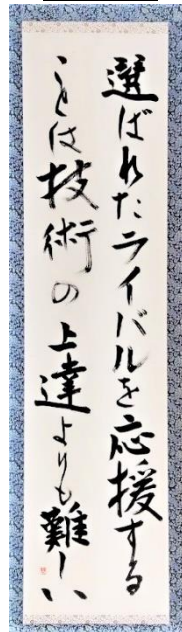 選ばれたライバルを応援する
ことは技術の上達よりも難しい